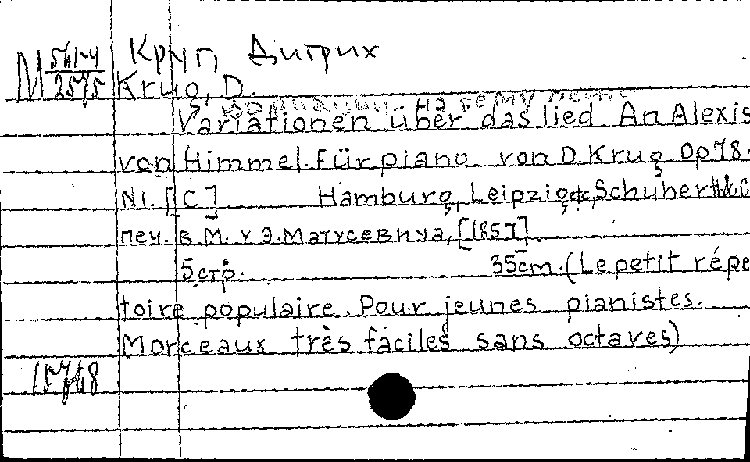 М 561-4/2575 Круг, Дитрих
Krug, D.
Вариации на тему песни
Variationen über das lied An Alexis
von Himmel. für piano von D. Krug Op 78.
N1. [C] Hamburg, Leipzig, Schuberth & C
печ. в М. у Э. Матусевича, [1857].
5 стр. 35 cm. (Le petit répe
toire populaire. Pour jeunes pianistes.
Morceaux très faciles sans octaves)